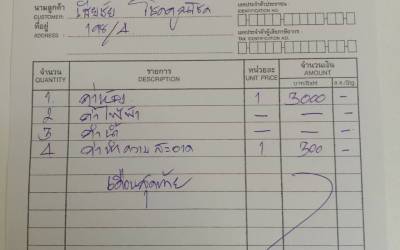 นามลูกค้า เลขประจำตัวประชาชน
CUSTOMER IDENTIFICATION NO.
ที่อยู่ เลขประจำตัวผู้เสียภาษีอากร
ADDRESS TAX IDENTIFICATION NO.
จำนวน รายการ หน่วยละ จำนวนเงิน
QUANTITY DESCRIPTION UNIT PRICE AMOUNT
บาท/Baht ส.ต./Stg.
1 ค่าห้อง 1 3000 -
2 ค่าไฟฟ้า -
3 ค่าน้ำ -
4 ค่าทำความสะอาด 1 300 -
เดือนสุดท้าย